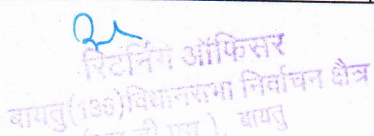 रिटर्निंग ऑफिसर
बायतु(135)विधानसभा निर्वाचन क्षैत्र
बायतु